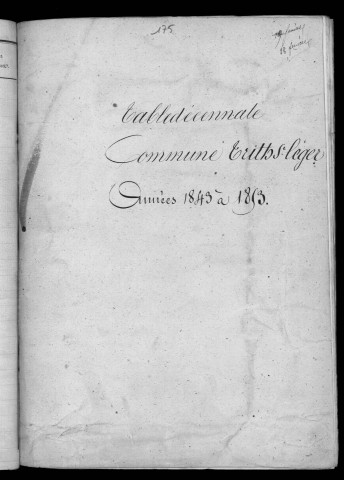 175
Table décennale
Commune Trith St. léger
Années 1843 à 1853.